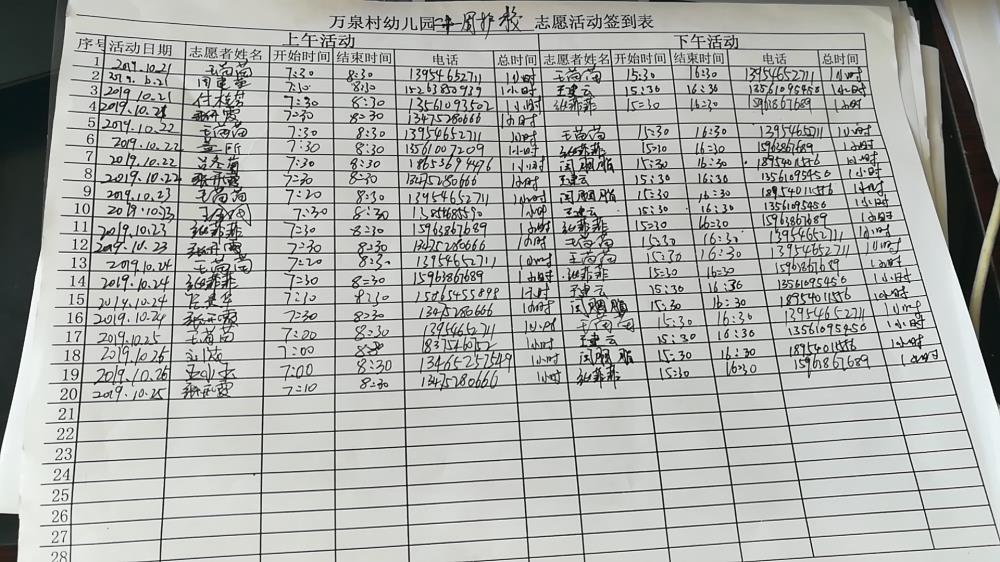 万泉村幼儿园 护校 志愿活动签到表
上午活动 下午活动
序号 活动日期 志愿者姓名 开始时间 结束时间 电话 总时间 志愿者姓名 开始时间 结束时间 电话 总时间
1 2019.10.21 王茵茵 7:30 8:30 13954652711 1小时 王茵茵 15:30 16:30 13954652711 1小时
2 7:10 8:30 15263850939 1小时 王建云 15:30 16:30 13561095450 1小时
3 2019.10.21 7:30 8:30 13561093502 1小时 张菲菲 15:30 16:30 15963867689 1小时
4 2019.10.21 7:30 8:30 13475280666 1小时
5 2019.10.22 王茵茵 7:30 8:30 13954652711 1小时 王茵茵 15:30 16:30 13954652711 1小时
6 2019.10.22 7:30 8:30 13561007209 1小时 张菲菲 15:30 16:30 15963867689 1小时
7 2019.10.22 7:30 8:30 18653694496 1小时 闫胭脂 15:30 16:30 18954011556 1小时
8 2019.10.22 7:30 8:30 13475280666 1小时 王建云 15:30 16:30 13561095450 1小时
9 2019.10.23 王茵茵 7:30 8:30 13954652711 1小时 闫胭脂 15:30 16:30 18954011556 1小时
10 2019.10.23 7:30 8:30 王建云 15:30 16:30 13561095450 1小时
11 2019.10.23 张菲菲 7:30 8:30 15963867689 1小时 张菲菲 15:30 16:30 15963867689 1小时
12 2019.10.23 7:30 8:30 13475280666 1小时 王茵茵 15:30 16:30 13954652711 1小时
13 2019.10.24 王茵茵 7:20 8:30 13954652711 1小时 王茵茵 15:30 16:30 13954652711 1小时
14 2019.10.24 张菲菲 7:30 8:30 15963867689 1小时 张菲菲 15:30 16:30 15963867689 1小时
15 2019.10.24 7:10 8:30 15065455898 1小时 王建云 15:30 16:30 13561095450 1小时
16 2019.10.24 7:30 8:30 13475280666 1小时 闫胭脂 15:30 16:30 18954011556 1小时
17 2019.10.25 王茵茵 7:00 8:30 13954652711 1小时 王茵茵 15:30 16:30 13954652711 1小时
18 2019.10.26 7:00 8:30 1小时 王建云 15:30 16:30 13561095450 1小时
19 2019.10.26 7:00 8:30 13465257549 1小时 闫胭脂 15:30 16:30 18954011556 1小时
20 2019.10.25 7:10 8:30 13475280666 1小时 张菲菲 15:30 16:30 15963867689 1小时
21
22
23
24
25
26
27
28